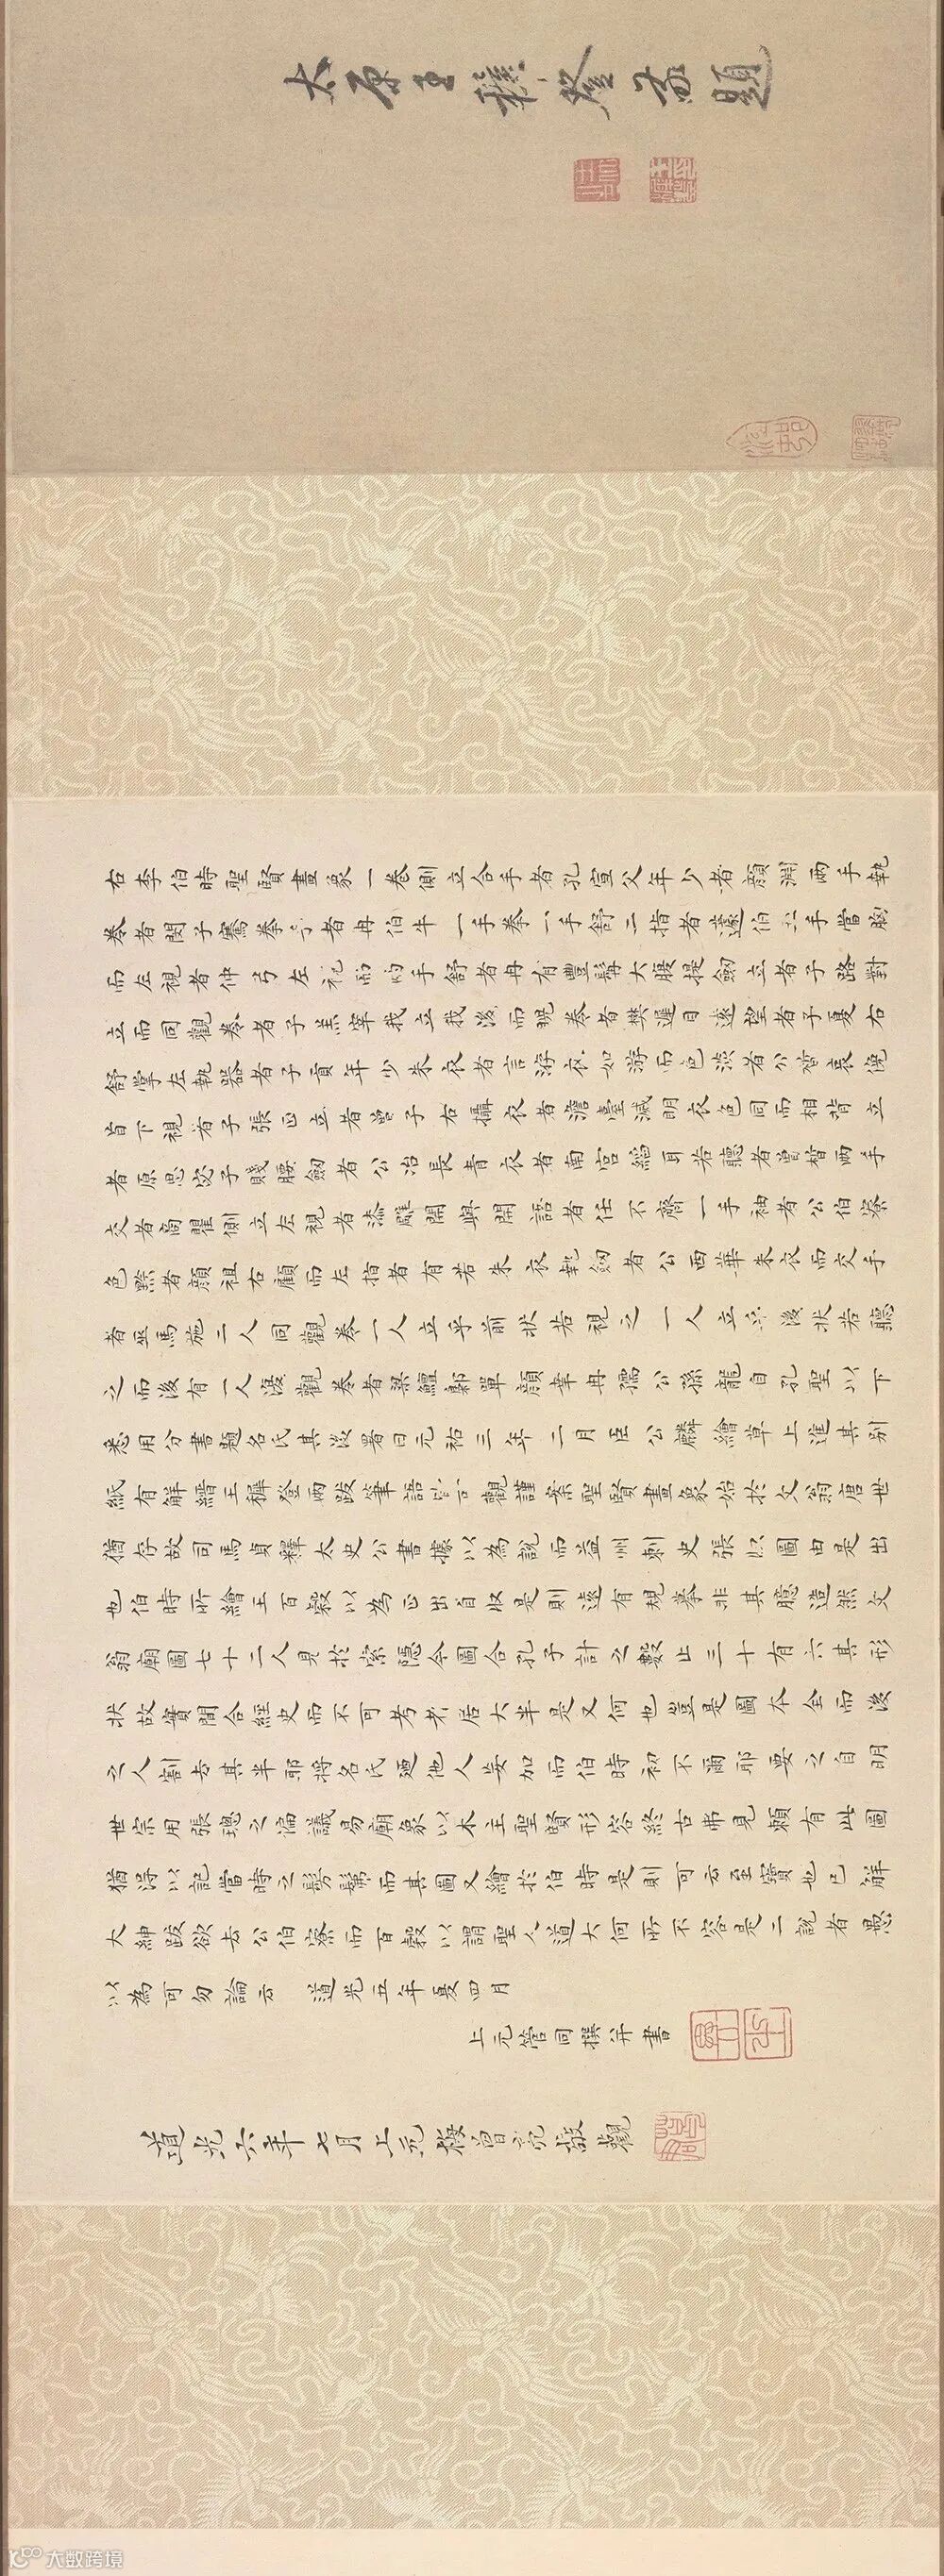 太原王穉登敬題
右李伯時聖賢畫象一卷側立合手者孔宣父年少者顏淵兩手執
卷者閔子騫拳手者冉伯牛一手拳一手舒二指者蘧伯玉手當胸
而左視者仲弓左視而兩手舒者冉有豐髯大腹提劔立者子路對
立而同觀卷者子羔宰我立我後而睨卷者樊遲目遠望者子夏右
舒掌左執器者子貢年少朱衣者言游衣如游而色淡者公皙哀俛
首下視者子張正立者曾子右攝衣者澹臺滅明衣色同而相背立
者原思宓子賤腰劔者公冶長青衣者南宮縚耳若聽者曾皙兩手
交者商瞿側立左視者漆雕開與開語者任不齊一手袖者公伯寮
色黦者顏祖右顧而左指者有若朱衣執劔者公西華朱衣而交手
者巫馬施二人同觀卷一人立乎前狀若視之一人立其後狀若聽
之而後有一人復觀卷者梁鱣鄡單顏辛冉孺公孫龍自孔聖以下
悉用分書題名氏其後署曰元祐三年二月臣公麟繪草上進其別
紙有解縉王穉登兩跋筆語皆可觀謹案聖賢畫象始於文翁唐世
猶存故司馬貞釋太史公書據以為說而益州刺史張收圖由是出
也伯時所繪王百穀以為正出自收是則遠有規摹非其臆造然文
翁廟圖七十二人見於索隱今圖合孔子計之數止三十有六其形
狀故實間合經史而不可考者居大半是又何也豈是圖本全而後
之人割去其半耶將名氏迺他人妄加而伯時初不爾耶要之自明
世宗用張璁之偏議易廟象以木主聖賢形容終古弗見賴有此圖
猶得以記當時之髣髴而其圖又繪於伯時是則可云至寶也已解
大紳跋欲去公伯寮而百穀以謂聖人道大何所不容是二說者愚
以為可勿論云 道光五年夏四月
上元管同撰并書
道光六年七月上元梅曾亮敬觀
大数跨境